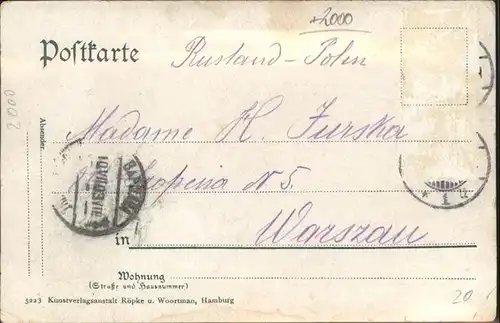 +2000
Postkarte
Rusland - Polen
2000
Absender:
Madame H. Turska
N 5.
in Warszau
Wohnung
(Straße und Hausnummer)
5223 Kunstverlagsanstalt Röpke u. Woortman, Hamburg
20